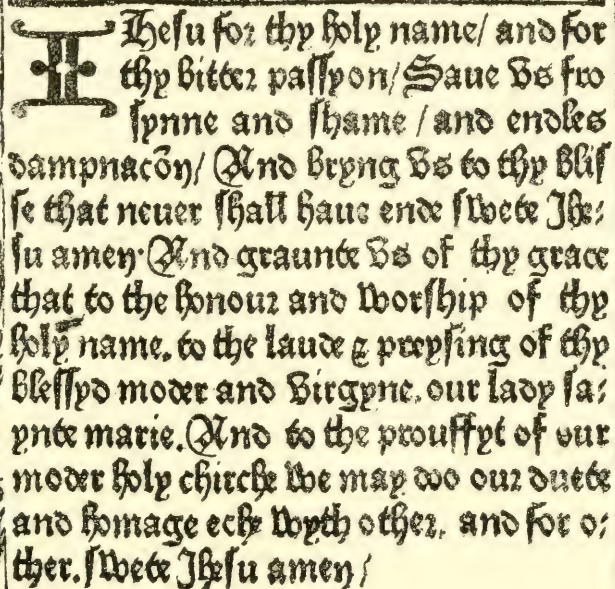 IHesu for thy holy name/ and for
thy bitter passyon/ Saue vs fro
synne and shame / and endles
dampnacōn/ And bryng vs to thy blis
se that neuer shall haue ende swete Ihe⸗
su amen· And graunte vs of thy grace
that to the honour and worship of thy
holy name. to the laude & preysing of thy
blessyd moder and virgyne. our lady sa⸗
ynte marie. And to the prouffyt of our
moder holy chirche we may do our duete
and homage eche wyth other. and for o⸗
ther. swete Ihesu amen /